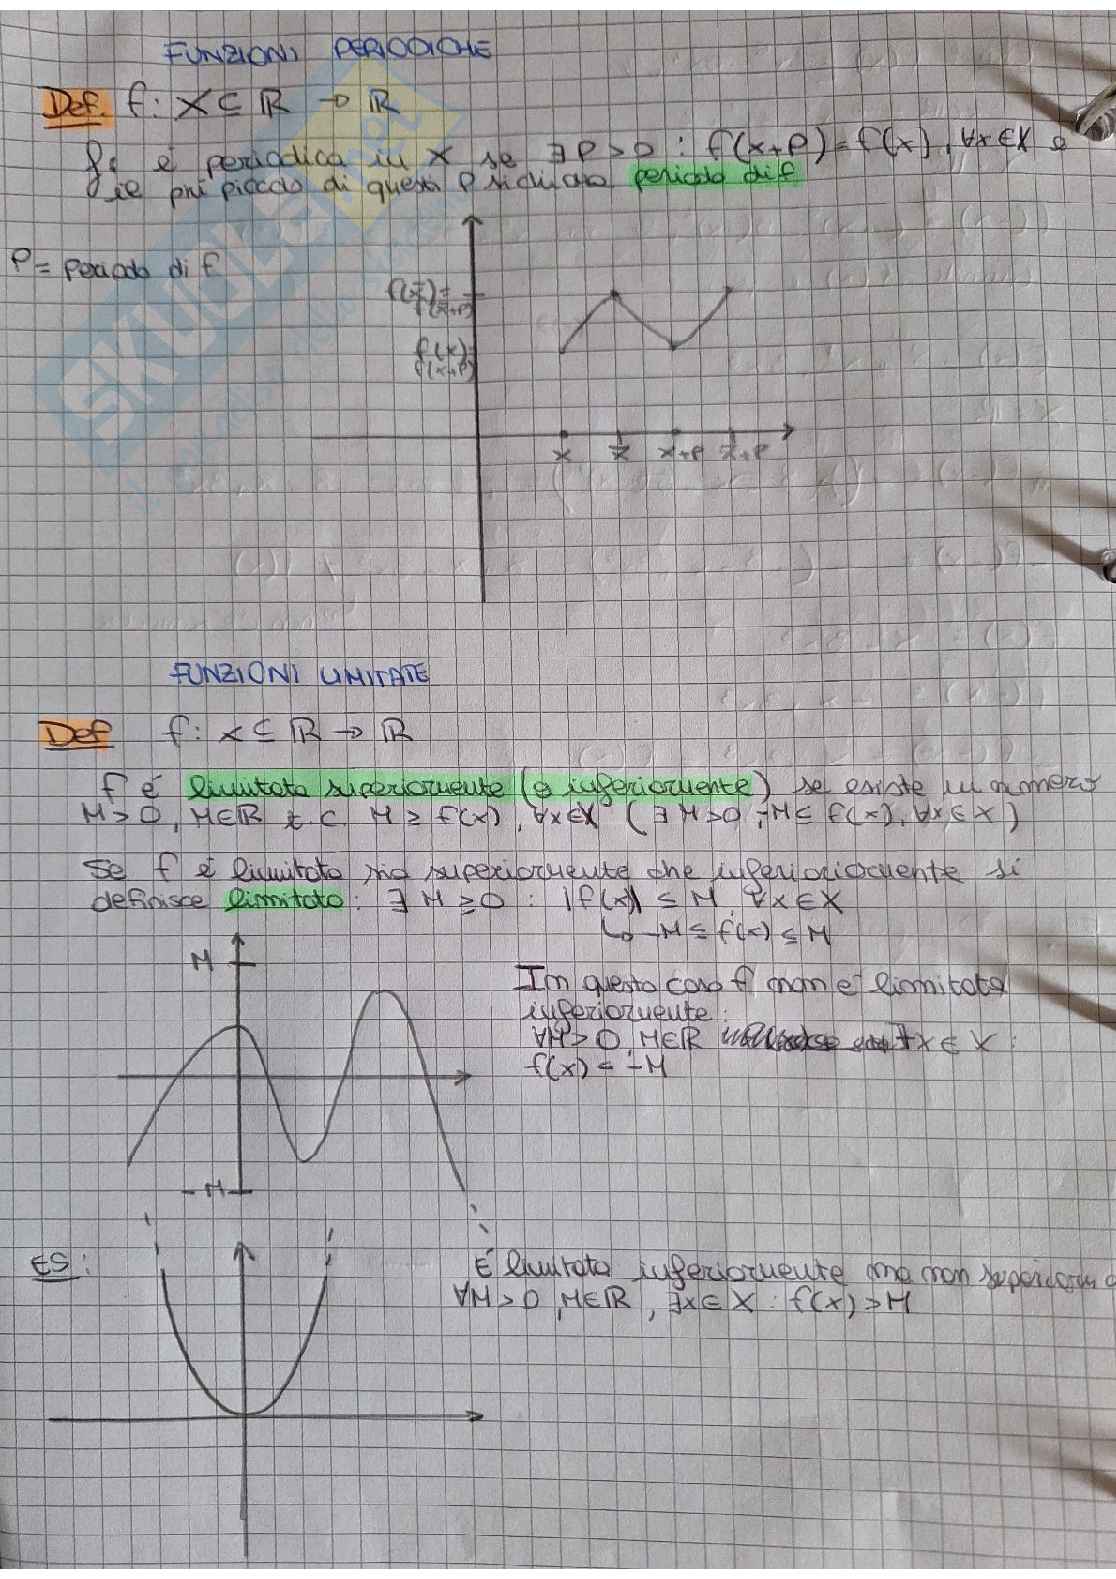 FUNZIONI PERIODICHE
Def. f: X ⊆ ℝ → ℝ
è periodica in X se ∃ P>0 : f(x+P) = f(x), ∀x∈X e
più piccolo di questi P si chiama periodo di f
P = periodo di f
f(x̄)=
f(x̄+P)
f(x)=
f(x+P)
x x̄ x+P x̄+P
SKUOLA.net
FUNZIONI LIMITATE
Def f: X ⊆ ℝ → ℝ
f è limitata superiormente (o inferiormente) se esiste un numero
M>0, M∈ℝ t.c. M ≥ f(x), ∀x∈X (∃ M>0, -M ≤ f(x), ∀x∈X)
Se f è limitata sia superiormente che inferiormente si
definisce limitata: ∃ M ≥ 0 : |f(x)| ≤ M, ∀x∈X
↳ -M ≤ f(x) ≤ M
M
In questo caso f non è limitata
inferiormente:
∀M>0, M∈ℝ x∈X :
f(x) = -M
-M
ES:
È limitata inferiormente ma non
∀M>0, M∈ℝ, ∃x∈X : f(x)>M